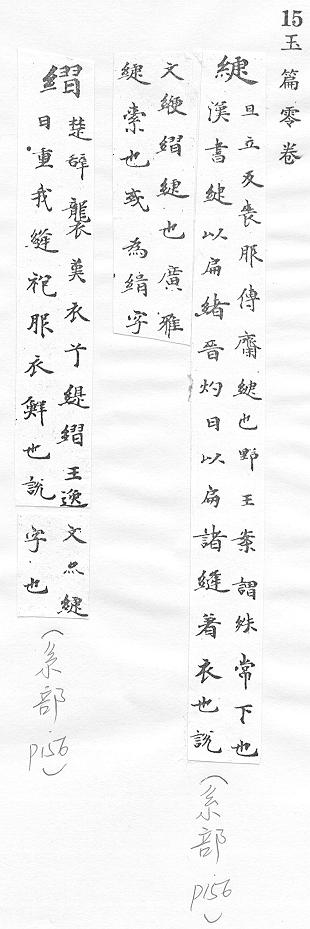 15玉篇零卷
緁
旦立反喪服傳齋緁也野王案謂殊常下也
漢書緁以扁緒晉灼曰以扁諸縫著衣也說
文緶䌌緁也廣雅
緁索也或為緝字
䌌
楚辞襲英衣兮緹䌌王逸
曰重我縫袍服衣鮮也說
文亦緁
字也
(糸部p156)
(糸部p156)